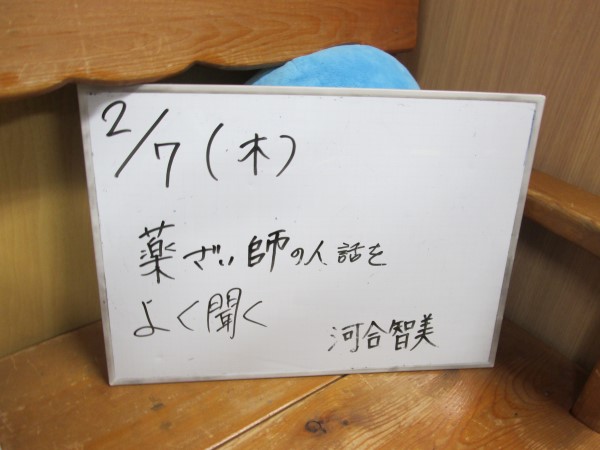 2/7(木)
薬ざい師の人話を
よく聞く
河合智美